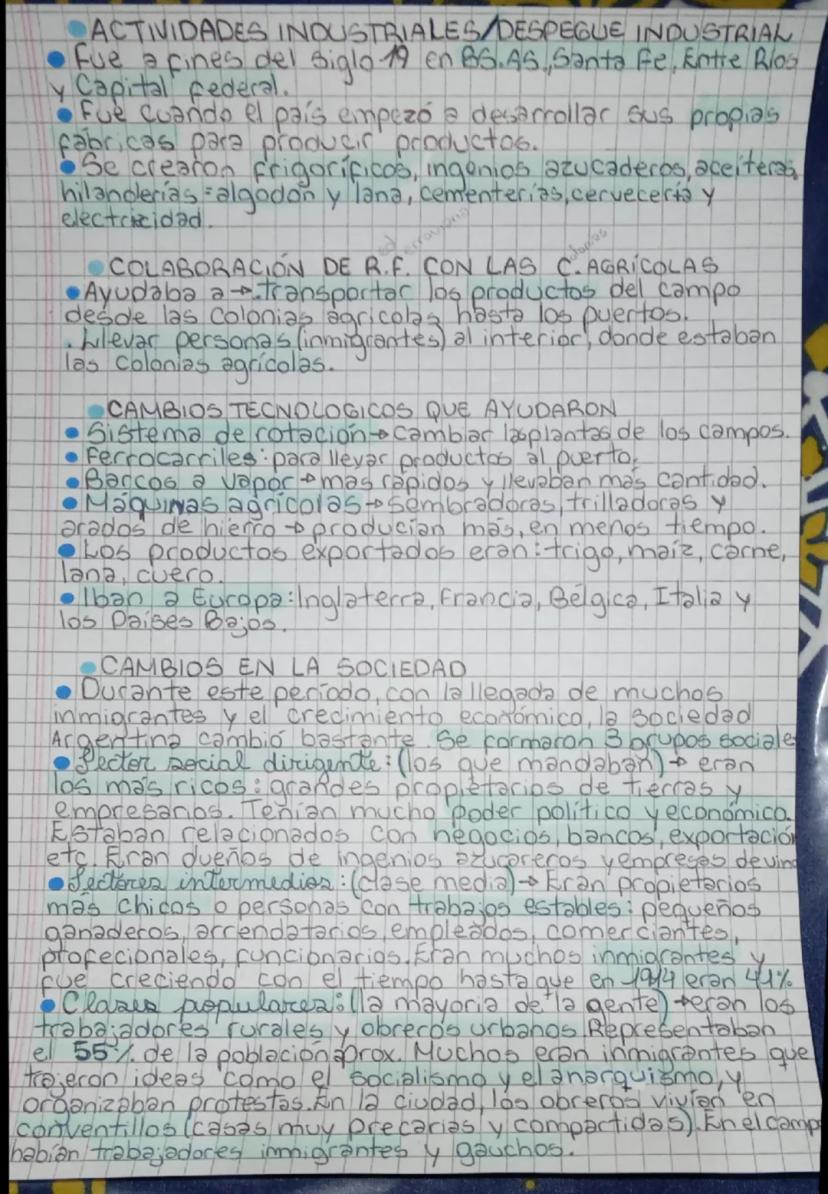 ACTIVIDADES INDUSTRIALES/DESPEGUE INDUSTRIAL
Fue a fines del siglo 19 en BS.AS., Santa Fe, Entre Ríos
y Capital Federal.
Fue cuando el país empezó a desarrollar sus propias
fábricas para producir productos.
Se crearon frigoríficos, ingenios azucaderos, aceiteras,
hilanderías=algodón y lana, cementerias, cervecería y
electricidad.
COLABORACIÓN DE R.F. CON LAS C. AGRÍCOLAS
Ayudaba a → transportar los productos del campo
desde las colonias agrícolas hasta los puertos.
. Llevar personas (inmigrantes) al interior, donde estaban
las colonias agrícolas.
CAMBIOS TECNOLOGICOS QUE AYUDARON
Sistema de rotación → cambiar las plantas de los campos.
Ferrocarriles: para llevar productos al puerto.
Barcos a vapor → mas rápidos y llevaban más cantidad.
Máquinas agrícolas → sembradoras, trilladoras y
arados de hierro → producían más, en menos tiempo.
Los productos exportados eran: trigo, maíz, carne,
lana, cuero.
Iban a Europa: Inglaterra, Francia, Bélgica, Italia y
los Países Bajos.
CAMBIOS EN LA SOCIEDAD
Durante este período, con la llegada de muchos
inmigrantes y el crecimiento económico, la sociedad
Argentina cambió bastante. Se formaron 3 grupos sociale
Sector social dirigente: (los que mandaban) → eran
los más ricos: grandes propietarios de tierras y
empresarios. Tenían mucho poder político y económico.
Estaban relacionados con negocios, bancos, exportación
etc. Eran dueños de ingenios azucareros y empresas de vino
Sectores intermedios: (clase media) → Eran propietarios
más chicos o personas con trabajos estables: pequeños
ganaderos, arrendatarios, empleados, comerciantes,
profecionales, funcionarios. Eran muchos inmigrantes y
fue creciendo con el tiempo hasta que en 1914 eran 41%
Clases populares: (la mayoría de la gente) → eran los
trabajadores rurales y obreros urbanos. Representaban
el 55% de la población aprox. Muchos eran inmigrantes que
trajeron ideas como el socialismo y el anarquismo, y
organizaban protestas. En la ciudad, los obreros vivían en
conventillos (casas muy precarias y compartidas). En el camp
habían trabajadores inmigrantes y gauchos.